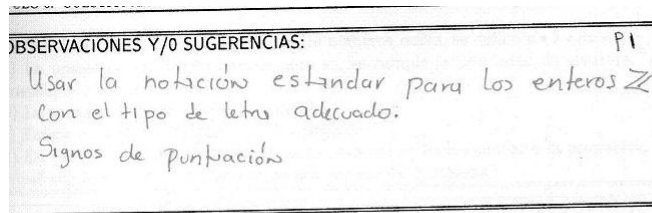 OBSERVACIONES Y/0 SUGERENCIAS: P1
Usar la notación estandar para los enteros ℤ
con el tipo de letra adecuado.
Signos de puntuación